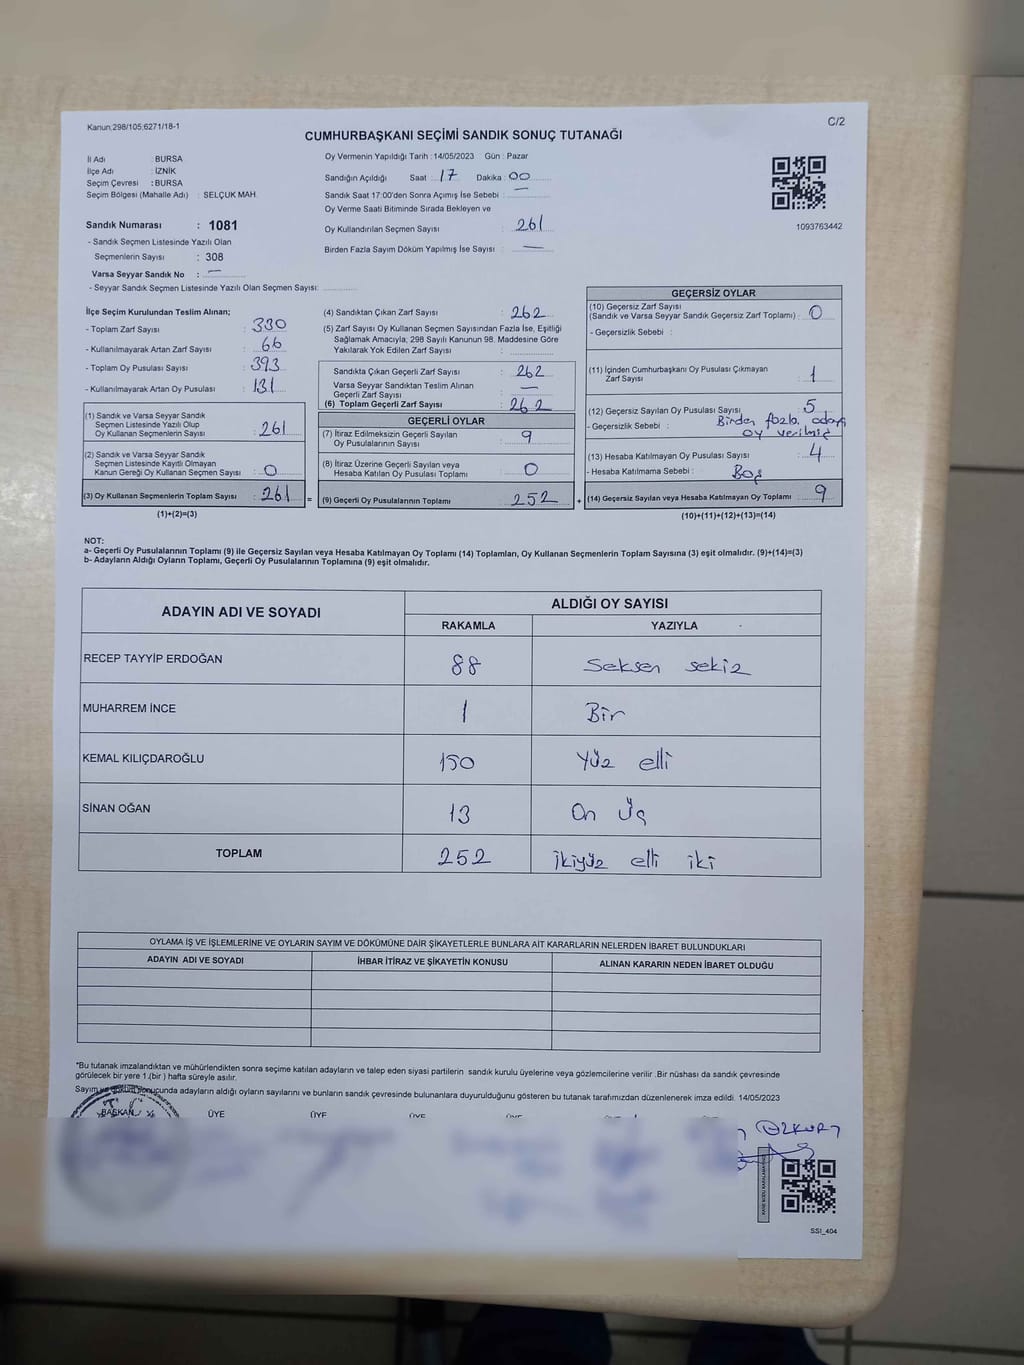 Kanun;298/105;6271/18-1
C/2
CUMHURBAŞKANI SEÇİMİ SANDIK SONUÇ TUTANAĞI
İl Adı : BURSA
İlçe Adı : İZNİK
Seçim Çevresi : BURSA
Seçim Bölgesi (Mahalle Adı) : SELÇUK MAH.
Sandık Numarası : 1081
- Sandık Seçmen Listesinde Yazılı Olan
Seçmenlerin Sayısı : 308
Varsa Seyyar Sandık No : —
- Seyyar Sandık Seçmen Listesinde Yazılı Olan Seçmen Sayısı:
Oy Vermenin Yapıldığı Tarih : 14/05/2023 Gün : Pazar
Sandığın Açıldığı Saat : 17 Dakika : 00
Sandık Saat 17:00'den Sonra Açımış İse Sebebi : —
Oy Verme Saati Bitiminde Sırada Bekleyen ve
Oy Kullandırılan Seçmen Sayısı : 261
Birden Fazla Sayım Döküm Yapılmış İse Sayısı : —
1093763442
İlçe Seçim Kurulundan Teslim Alınan;
- Toplam Zarf Sayısı : 330
- Kullanılmayarak Artan Zarf Sayısı : 66
- Toplam Oy Pusulası Sayısı : 393
- Kullanılmayarak Artan Oy Pusulası : 131
(1) Sandık ve Varsa Seyyar Sandık
Seçmen Listesinde Yazılı Olup
Oy Kullanan Seçmenlerin Sayısı : 261
(2) Sandık ve Varsa Seyyar Sandık
Seçmen Listesinde Kayıtlı Olmayan
Kanun Gereği Oy Kullanan Seçmen Sayısı : 0
(3) Oy Kullanan Seçmenlerin Toplam Sayısı : 261 =
(1)+(2)=(3)
(4) Sandıktan Çıkan Zarf Sayısı : 262
(5) Zarf Sayısı Oy Kullanan Seçmen Sayısından Fazla İse, Eşitliği
Sağlamak Amacıyla; 298 Sayılı Kanunun 98. Maddesine Göre
Yakılarak Yok Edilen Zarf Sayısı :
Sandıkta Çıkan Geçerli Zarf Sayısı : 262
Varsa Seyyar Sandıktan Teslim Alınan
Geçerli Zarf Sayısı : —
(6) Toplam Geçerli Zarf Sayısı : 262
GEÇERLİ OYLAR
(7) İtiraz Edilmeksizin Geçerli Sayılan
Oy Pusulalarının Sayısı : 9
(8) İtiraz Üzerine Geçerli Sayılan veya
Hesaba Katılan Oy Pusulası Toplamı : 0
(9) Geçerli Oy Pusulalarının Toplamı : 252 +
GEÇERSİZ OYLAR
(10) Geçersiz Zarf Sayısı
(Sandık ve Varsa Seyyar Sandık Geçersiz Zarf Toplamı) : 0
- Geçersizlik Sebebi :
(11) İçinden Cumhurbaşkanı Oy Pusulası Çıkmayan
Zarf Sayısı : 1
(12) Geçersiz Sayılan Oy Pusulası Sayısı : 5
- Geçersizlik Sebebi : Birden fazla adaya
oy verilmiş
(13) Hesaba Katılmayan Oy Pusulası Sayısı : 4
- Hesaba Katılmama Sebebi : Boş
(14) Geçersiz Sayılan veya Hesaba Katılmayan Oy Toplamı : 9
(10)+(11)+(12)+(13)=(14)
NOT:
a- Geçerli Oy Pusulalarının Toplamı (9) ile Geçersiz Sayılan veya Hesaba Katılmayan Oy Toplamı (14) Toplamları, Oy Kullanan Seçmenlerin Toplam Sayısına (3) eşit olmalıdır. (9)+(14)=(3)
b- Adayların Aldığı Oyların Toplamı, Geçerli Oy Pusulalarının Toplamına (9) eşit olmalıdır.
ADAYIN ADI VE SOYADI ALDIĞI OY SAYISI
RAKAMLA YAZIYLA
RECEP TAYYİP ERDOĞAN 88 Seksen sekiz
MUHARREM İNCE 1 Bir
KEMAL KILIÇDAROĞLU 150 Yüz elli
SİNAN OĞAN 13 On Üç
TOPLAM 252 İkiyüz elli iki
OYLAMA İŞ VE İŞLEMLERİNE VE OYLARIN SAYIM VE DÖKÜMÜNE DAİR ŞİKAYETLERLE BUNLARA AİT KARARLARIN NELERDEN İBARET BULUNDUKLARI
ADAYIN ADI VE SOYADI İHBAR İTİRAZ VE ŞİKAYETİN KONUSU ALINAN KARARIN NEDEN İBARET OLDUĞU
*Bu tutanak imzalandıktan ve mühürlendikten sonra seçime katılan adayların ve talep eden siyasi partilerin sandık kurulu üyelerine veya gözlemcilerine verilir .Bir nüshası da sandık çevresinde
görülecek bir yere 1.(bir ) hafta süreyle asılır.
Sayım ve döküm sonucunda adayların aldığı oyların sayılarını ve bunların sandık çevresinde bulunanlara duyurulduğunu gösteren bu tutanak tarafımızdan düzenlenerek imza edildi. 14/05/2023
BAŞKAN ÜYE ÜYE ÜYE ÜYE
SSI_404